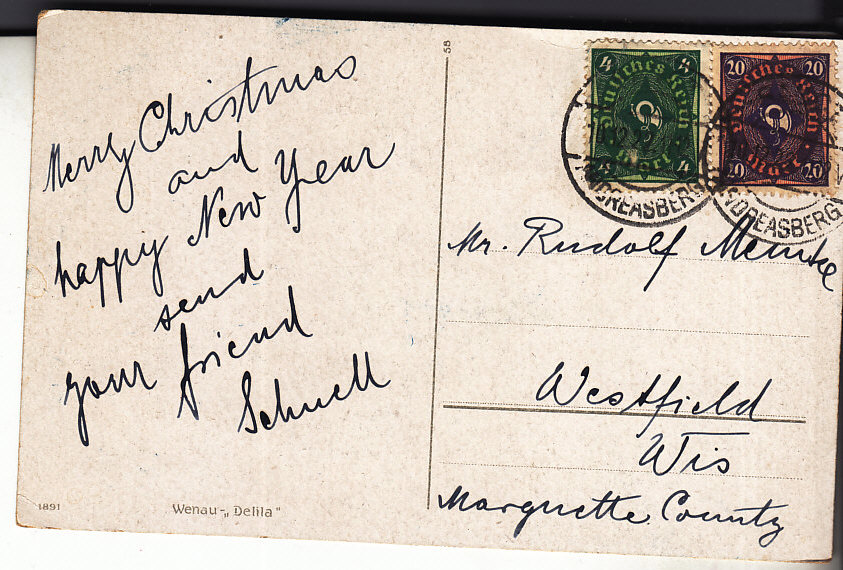 Merry Christmas
and
happy New Year
send
your friend
Schnell
1891
Wenau-„Delila"
58
4 4
Deutsches Reich
Mark
4 4
20 20
Deutsches Reich
Mark
20 20
ANDREASBERG
ANDREASBERG
Mr. Rudolf
Westfield
Wis
Marquette County